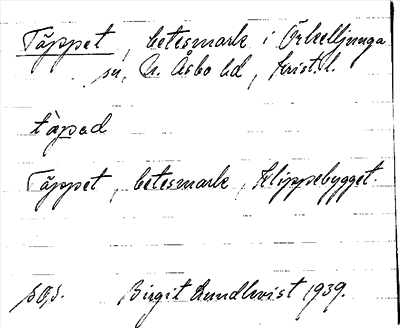 Täppet, betesmark i Örkelljunga
sn, N. Åsbo hd, Krist. l.
täpad
Täppet, betesmark, Klippebygget.
Birgit Lundkvist 1939.